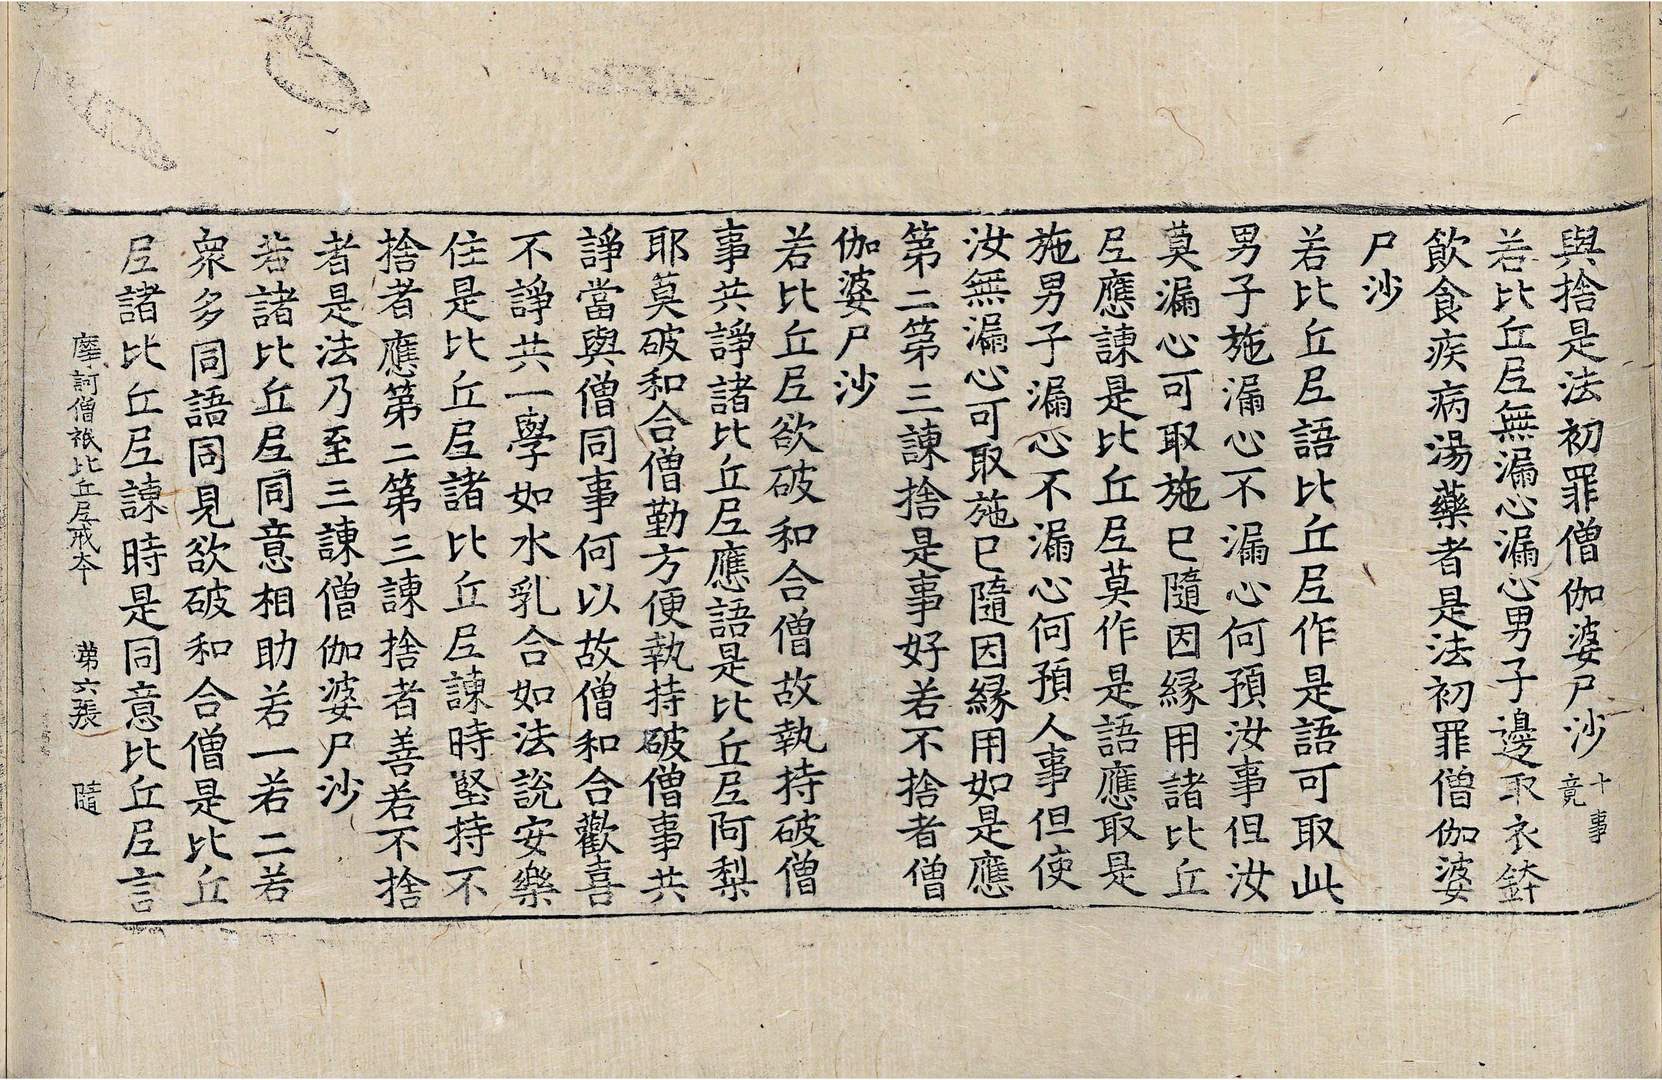 與捨是法初罪僧伽婆尸沙十事竟
若比丘𡰱無漏心漏心男子邊取衣鉢
飲食疾病湯藥者是法初罪僧伽婆
尸沙
若比丘𡰱語比丘𡰱作是語可取此
男子施漏心不漏心何預汝事但汝
莫漏心可取施已隨因緣用諸比丘
𡰱應諫是比丘𡰱莫作是語應取是
施男子漏心不漏心何預人事但使
汝無漏心可取施已隨因緣用如是應
第二第三諫捨是事好若不捨者僧
伽婆尸沙
若比丘𡰱欲破和合僧故執持破僧
事共諍諸比丘𡰱應語是比丘𡰱阿梨
耶莫破和合僧勤方便執持破僧事共
諍當與僧同事何以故僧和合歡喜
不諍共一學如水乳合如法說安樂
住是比丘𡰱諸比丘𡰱諫時堅持不
捨者應第二第三諫捨者善若不捨
者是法乃至三諫僧伽婆尸沙
若諸比丘𡰱同意相助若一若二若
衆多同語同見欲破和合僧是比丘
𡰱諸比丘𡰱諫時是同意比丘𡰱言
摩訶僧祇比丘𡰱戒本 第六張 隨